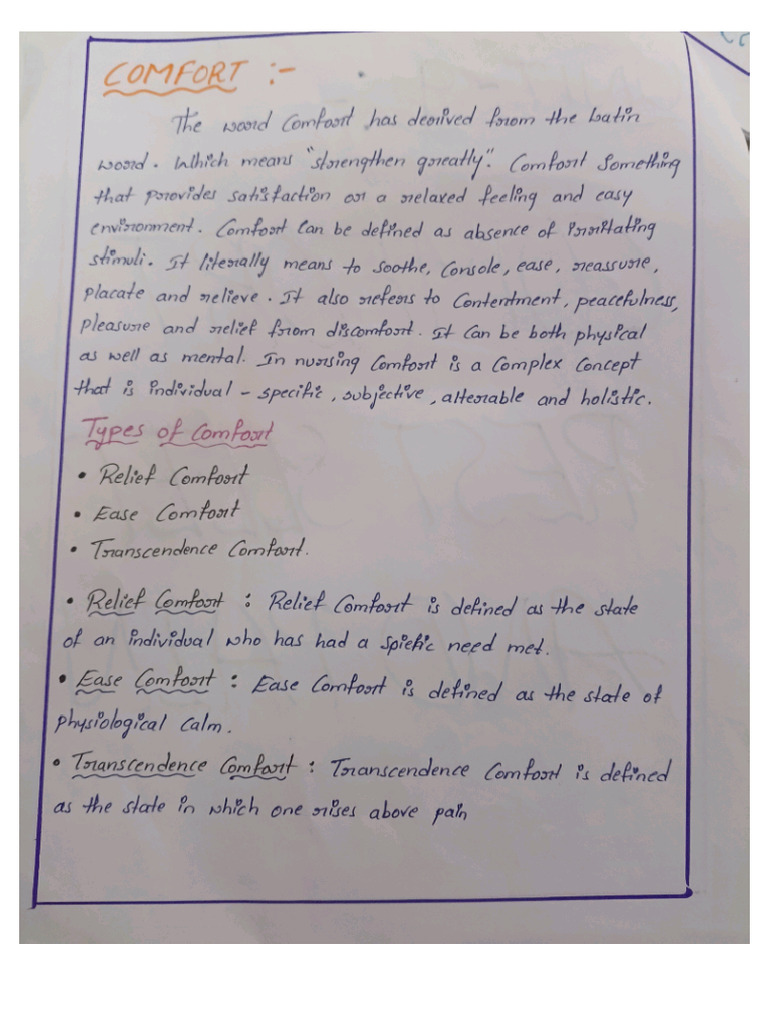 COMFORT :-
The word Comfort has derived from the Latin
word. Which means "strengthen greatly". Comfort Something
that provides satisfaction or a relaxed feeling and easy
environment. Comfort Can be defined as absence of Irritating
stimuli. It literally means to soothe, Console, ease, reassure,
placate and relieve. It also refers to Contentment, peacefulness,
pleasure and relief from discomfort. It Can be both physical
as well as mental. In nursing Comfort is a Complex Concept
that is individual - specific, subjective, alterable and holistic.
Types of Comfort
• Relief Comfort
• Ease Comfort
• Transcendence Comfort.
• Relief Comfort : Relief Comfort is defined as the state
of an individual who has had a spicfic need met.
• Ease Comfort : Ease Comfort is defined as the state of
physiological Calm.
• Transcendence Comfort : Transcendence Comfort is defined
as the state in which one rises above pain